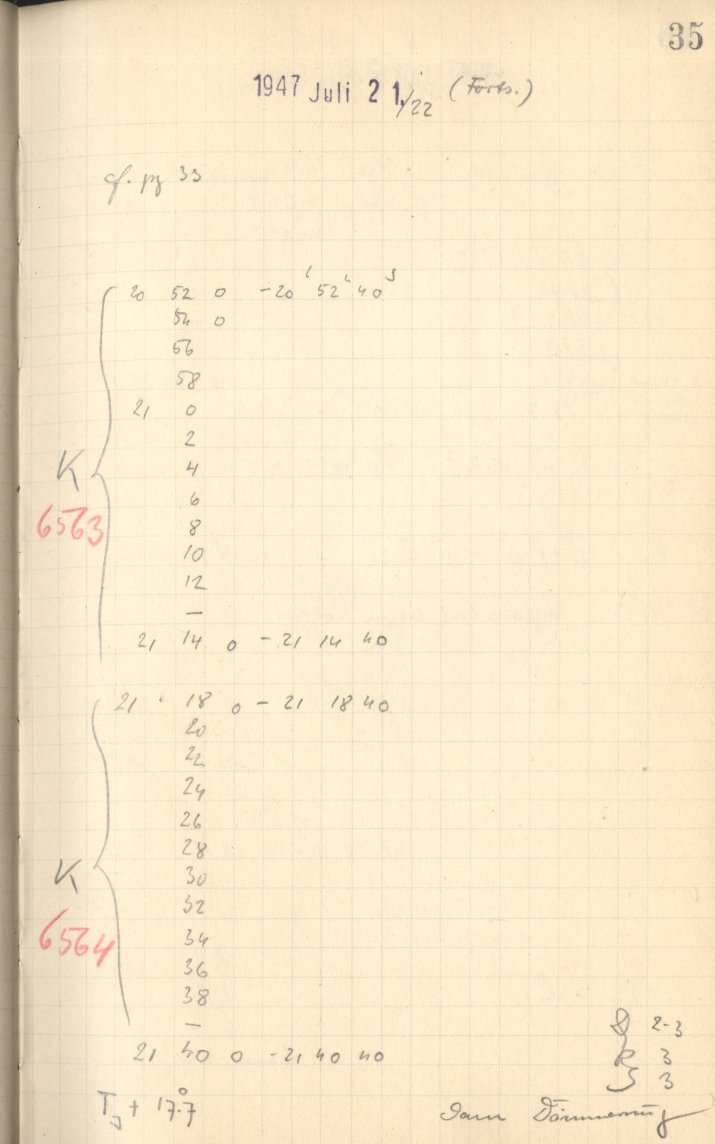 35
1947 Juli 21./22 (Forts.)
cf. pg 33
20 52 0 - 20 52 40
54 0
56
58
21 0
2
4
K
6
6563
8
10
12
—
21 14 0 - 21 14 40
21 18 0 - 21 18 40
20
22
24
26
28
K
30
32
6564
34
36
38
—
21 40 0 - 21 40 40
2-3
R 3
S 3
T + 17.°7
Dann Dämmerung